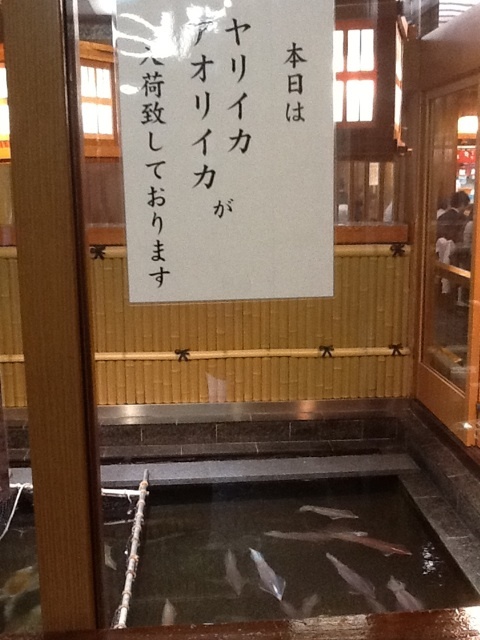 本日は
ヤリイカ
アオリイカが
入荷致しております